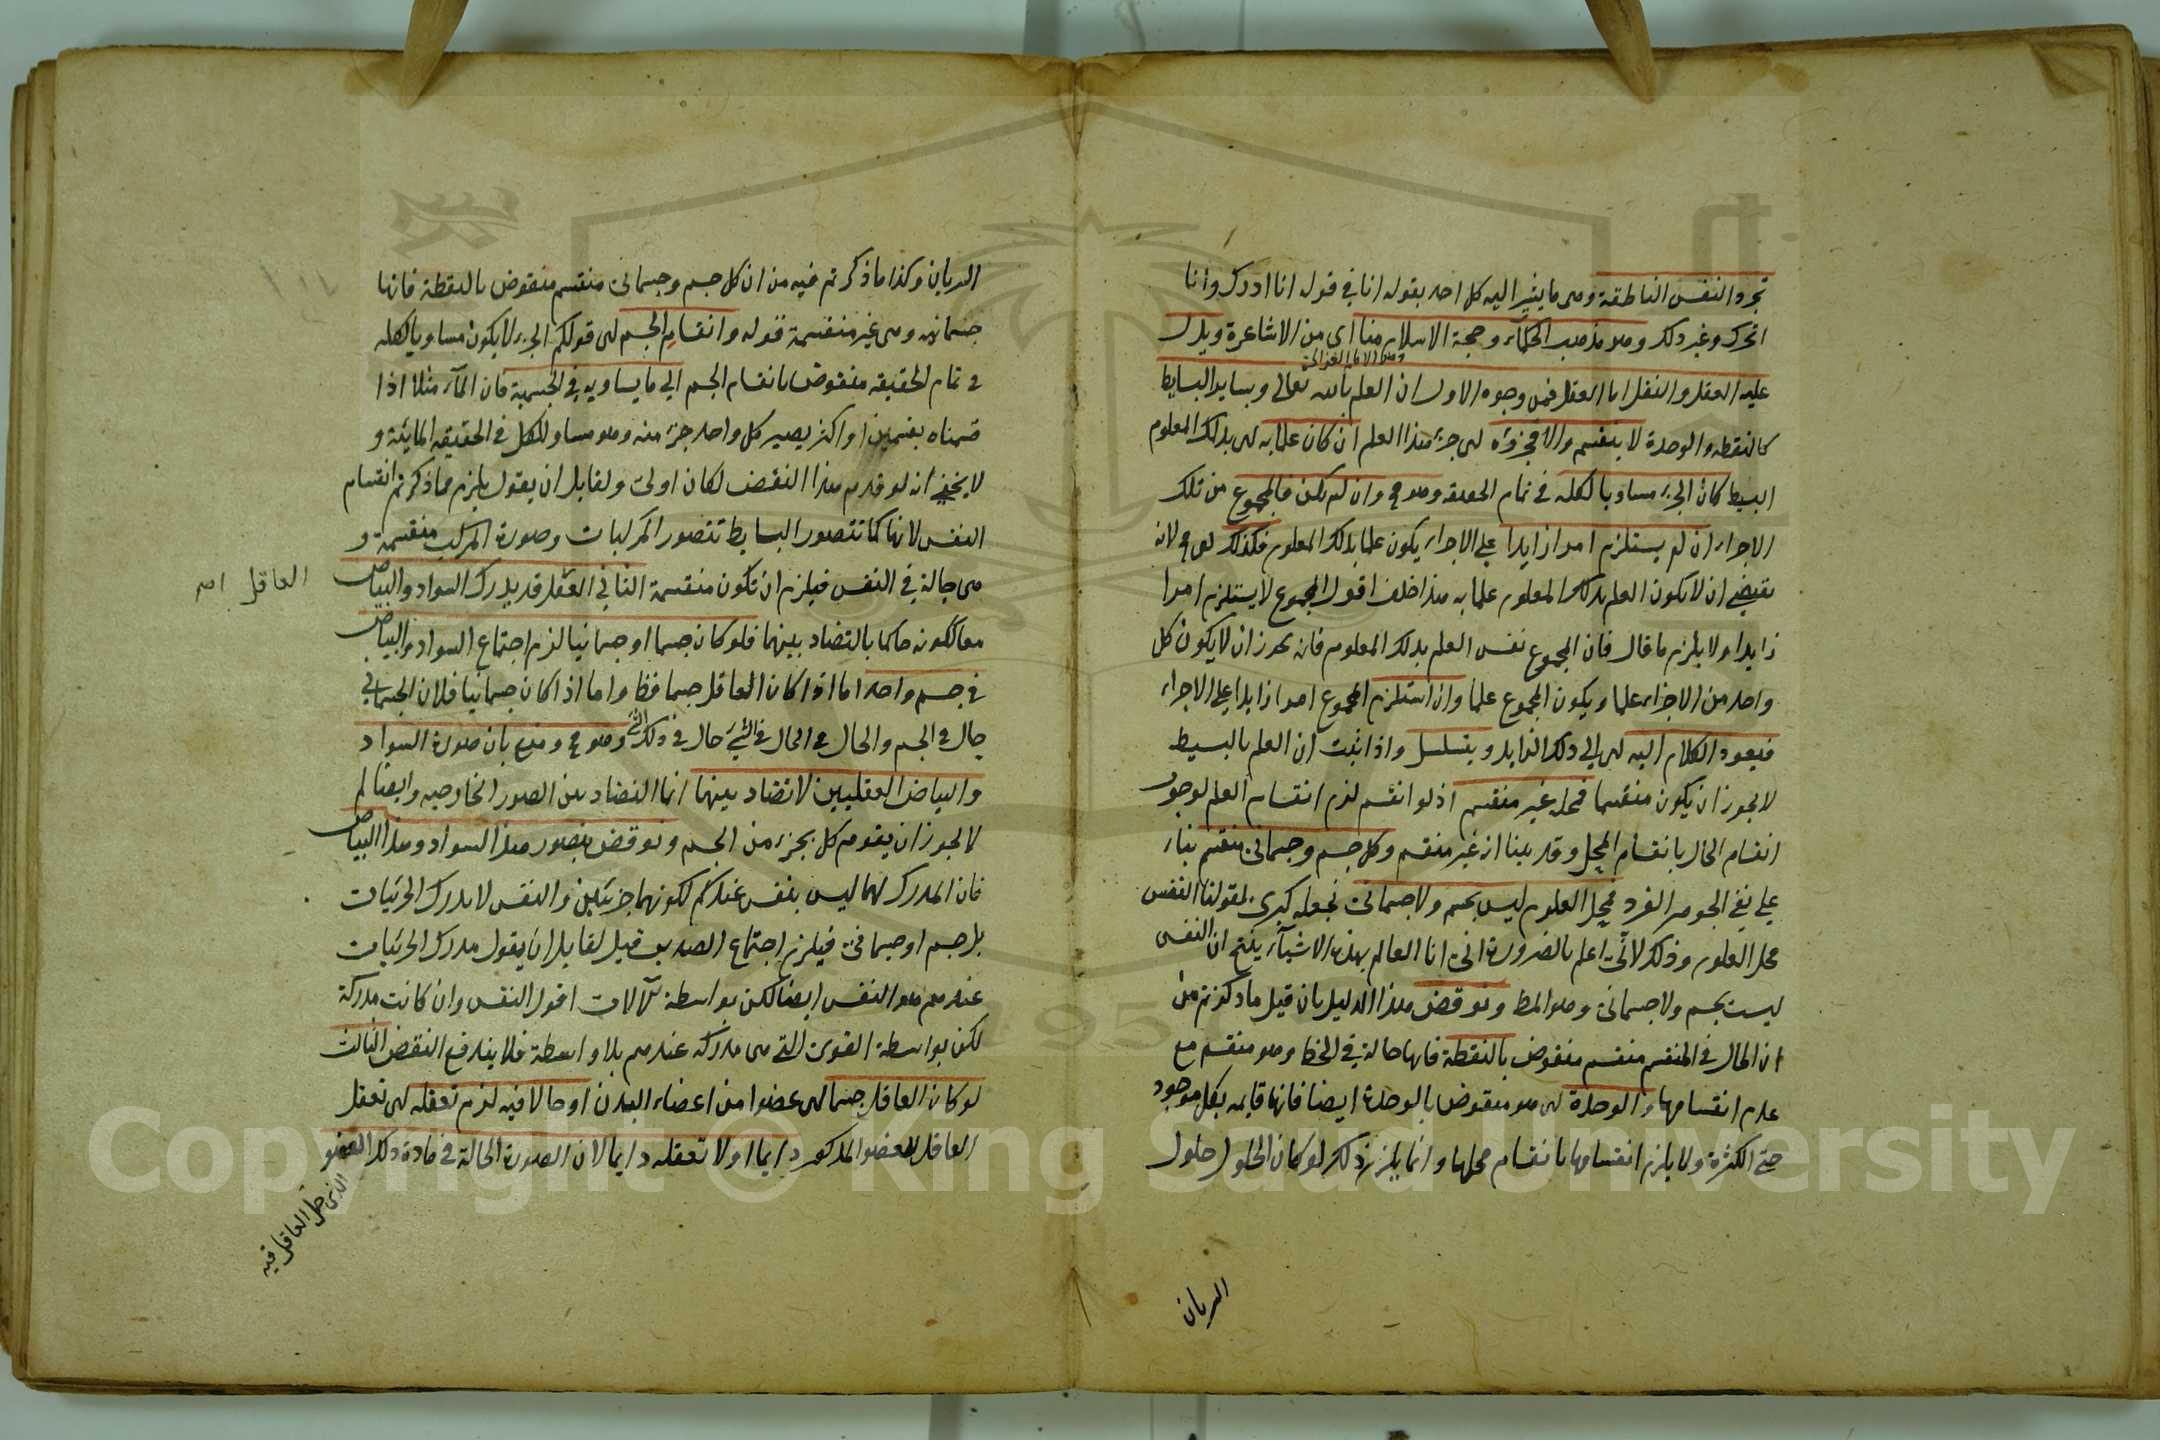 تجرد النفس الناطقة وهى ما يشير اليه كل احد بقوله انا فى قوله انا ادرك وانا
اتحرك وغير ذلك وهو مذهب الحكماء وحجة الاسلام منا اى من الاشاعرة ويدل
وهو الامام الغزالى
عليه العقل والنقل اما العقل فمن وجوه الاول ان العلم بالله تعالى وبساير البسايط
كالنقطة والوحدة لا ينقسم والا فجزؤه اى جزء هذا العلم ان كان علما به اى بذلك المعلوم
البسيط كان الجزء مساويا لكله فى تمام الحقيقة وهو مح وان لم يكن فالمجموع من تلك
الاجزاء ان لم يستلزم امرا زايدا على الاجزاء يكون علما بذلك المعلوم فكذلك لانه
يقتضى ان لا يكون العلم بذلك المعلوم علما به هذا خلف اقول المجموع لا يستلزم امرا
زايدا ولا يلزم ما قال فان المجموع نفس العلم بذلك المعلوم فانه يجوز ان لا يكون كل
واحد من الاجزاء علما ويكون المجموع علما وان استلزم المجموع امرا زايدا على الاجزاء
فيعود الكلام اليه اى الى ذلك الزايد ويتسلسل واذا ثبت ان العلم بالبسيط
لا يجوز ان يكون منقسما فمحله غير منقسم اذ لو انقسم لزم انقسام العلم لوجوب
انقسام الحال بانقسام المحل وقد بينا انه غير منقسم وكل جسم وجسمانى منقسم بناء
على نفى الجوهر الفرد فمحل العلوم ليس بجسم ولا جسمانى نجعله كبرى لقولنا النفس
محل العلوم وذلك لانى اعلم بالضرورة انى انا العالم بهذه الاشياء ينتج ان النفس
ليست بجسم ولا جسمانى وهو المط ونوقض هذا الدليل بان قيل ما ذكرتم من
ان الحال فى المنقسم منقسم منقوض بالنقطة فانها حالة فى الخط وهو منقسم مع
عدم انقسامها والوحدة اى هو منقوض بالوحدة ايضا فانها قايمة بكل موجود
حتى الكثرة ولا يلزم انقسامها بانقسام محلها وانما يلزم ذلك لو كان الحلول حلول
السريان
السريان وكذا ما ذكرتم فيه من ان كل جسم وجسمانى منقسم منقوض بالنقطة فانها
جسمانية وهى غير منقسمة قوله وانقسام الجسم اى قولكم الجزء لا يكون مساويا لكله
فى تمام الحقيقة منقوض بانقسام الجسم الى ما يساويه فى الجسمية فان الماء مثلا اذا
قسمناه بقسمين او اكثر يصير كل واحد جزء منه وهو مساو للكل فى الحقيقة المائية و
لا يخفى انه لو قدم هذا النقض لكان اولى ولقايل ان يقول يلزم مما ذكرتم انقسام
النفس لانها كما تتصور البسايط تتصور المركبات وصورة المركب منقسمة و
هى حالة فى النفس فيلزم ان تكون منقسمة الثانى العقل قد يدرك السواد والبياض
العاقل اصـ
معا لكونه حاكما بالتضاد بينهما فلو كان جسما او جسمانيا لزم اجتماع السواد والبياض
فى جسم واحد اما اذا كان العاقل جسما فظا واما اذا كان جسمانيا فلان الجسمانى
حال فى الجسم والحال فى الحال فى الشىء حال فى ذلك الشىء وهو مح ومنع بان صورة السواد
والبياض العقليين لا تضاد بينهما انما التضاد بين الصور الخارجية وايضا لم
لا يجوز ان يقوم كل بجزء من الجسم ونوقض بتصور هذا السواد وهذا البياض
فان المدرك لهما ليس بنفس عندكم لكونهما جزئيين والنفس لا يدرك الجزئيات
بل جسم او جسمانى فيلزم اجتماع الضدين قيل لقايل ان يقول مدرك الجزئيات
عندهم هو النفس ايضا لكن بواسطة الآلات اقول النفس وان كانت مدركة
لكن بواسطة القوى التى هى مدركة عندهم بلا واسطة فلا يندفع النقض الثالث
لو كان العاقل جسما اى عضوا من اعضاء البدن او حالا فيه لزم تعقله اى تعقل
العاقل للعضو المذكور دايما او لا تعقله دايما لان الصورة الحالة فى مادة ذلك العضو
الذى حل العاقل فيه
Copyright © King Saud University